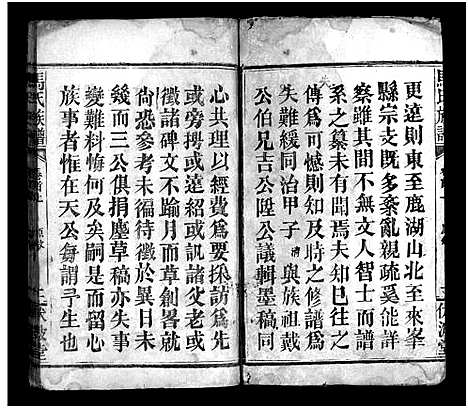 更遠則東至鹿湖山北至來峯
縣宗支既多紊亂親疏奚能詳
察雖其間不無文人智士而世
系之纂未有聞焉夫知已往之
傳爲可憾則知及時之修譜爲
失難緩同治甲子與族祖戴
公伯兄吉公陞公議輯墨稿同
心共理以經費爲要採訪爲先
或旁搜或遠紹或諏諸父老或
徵諸碑文不踰月而草創畧就
尚恐參考未徧待徵於異日未
幾而三公俱捐塵草稿亦失事
變難料悔何及矣嗣是而留心
族事者惟在天公每謂予生也
馬氏族譜
馬氏族譜
伏波堂